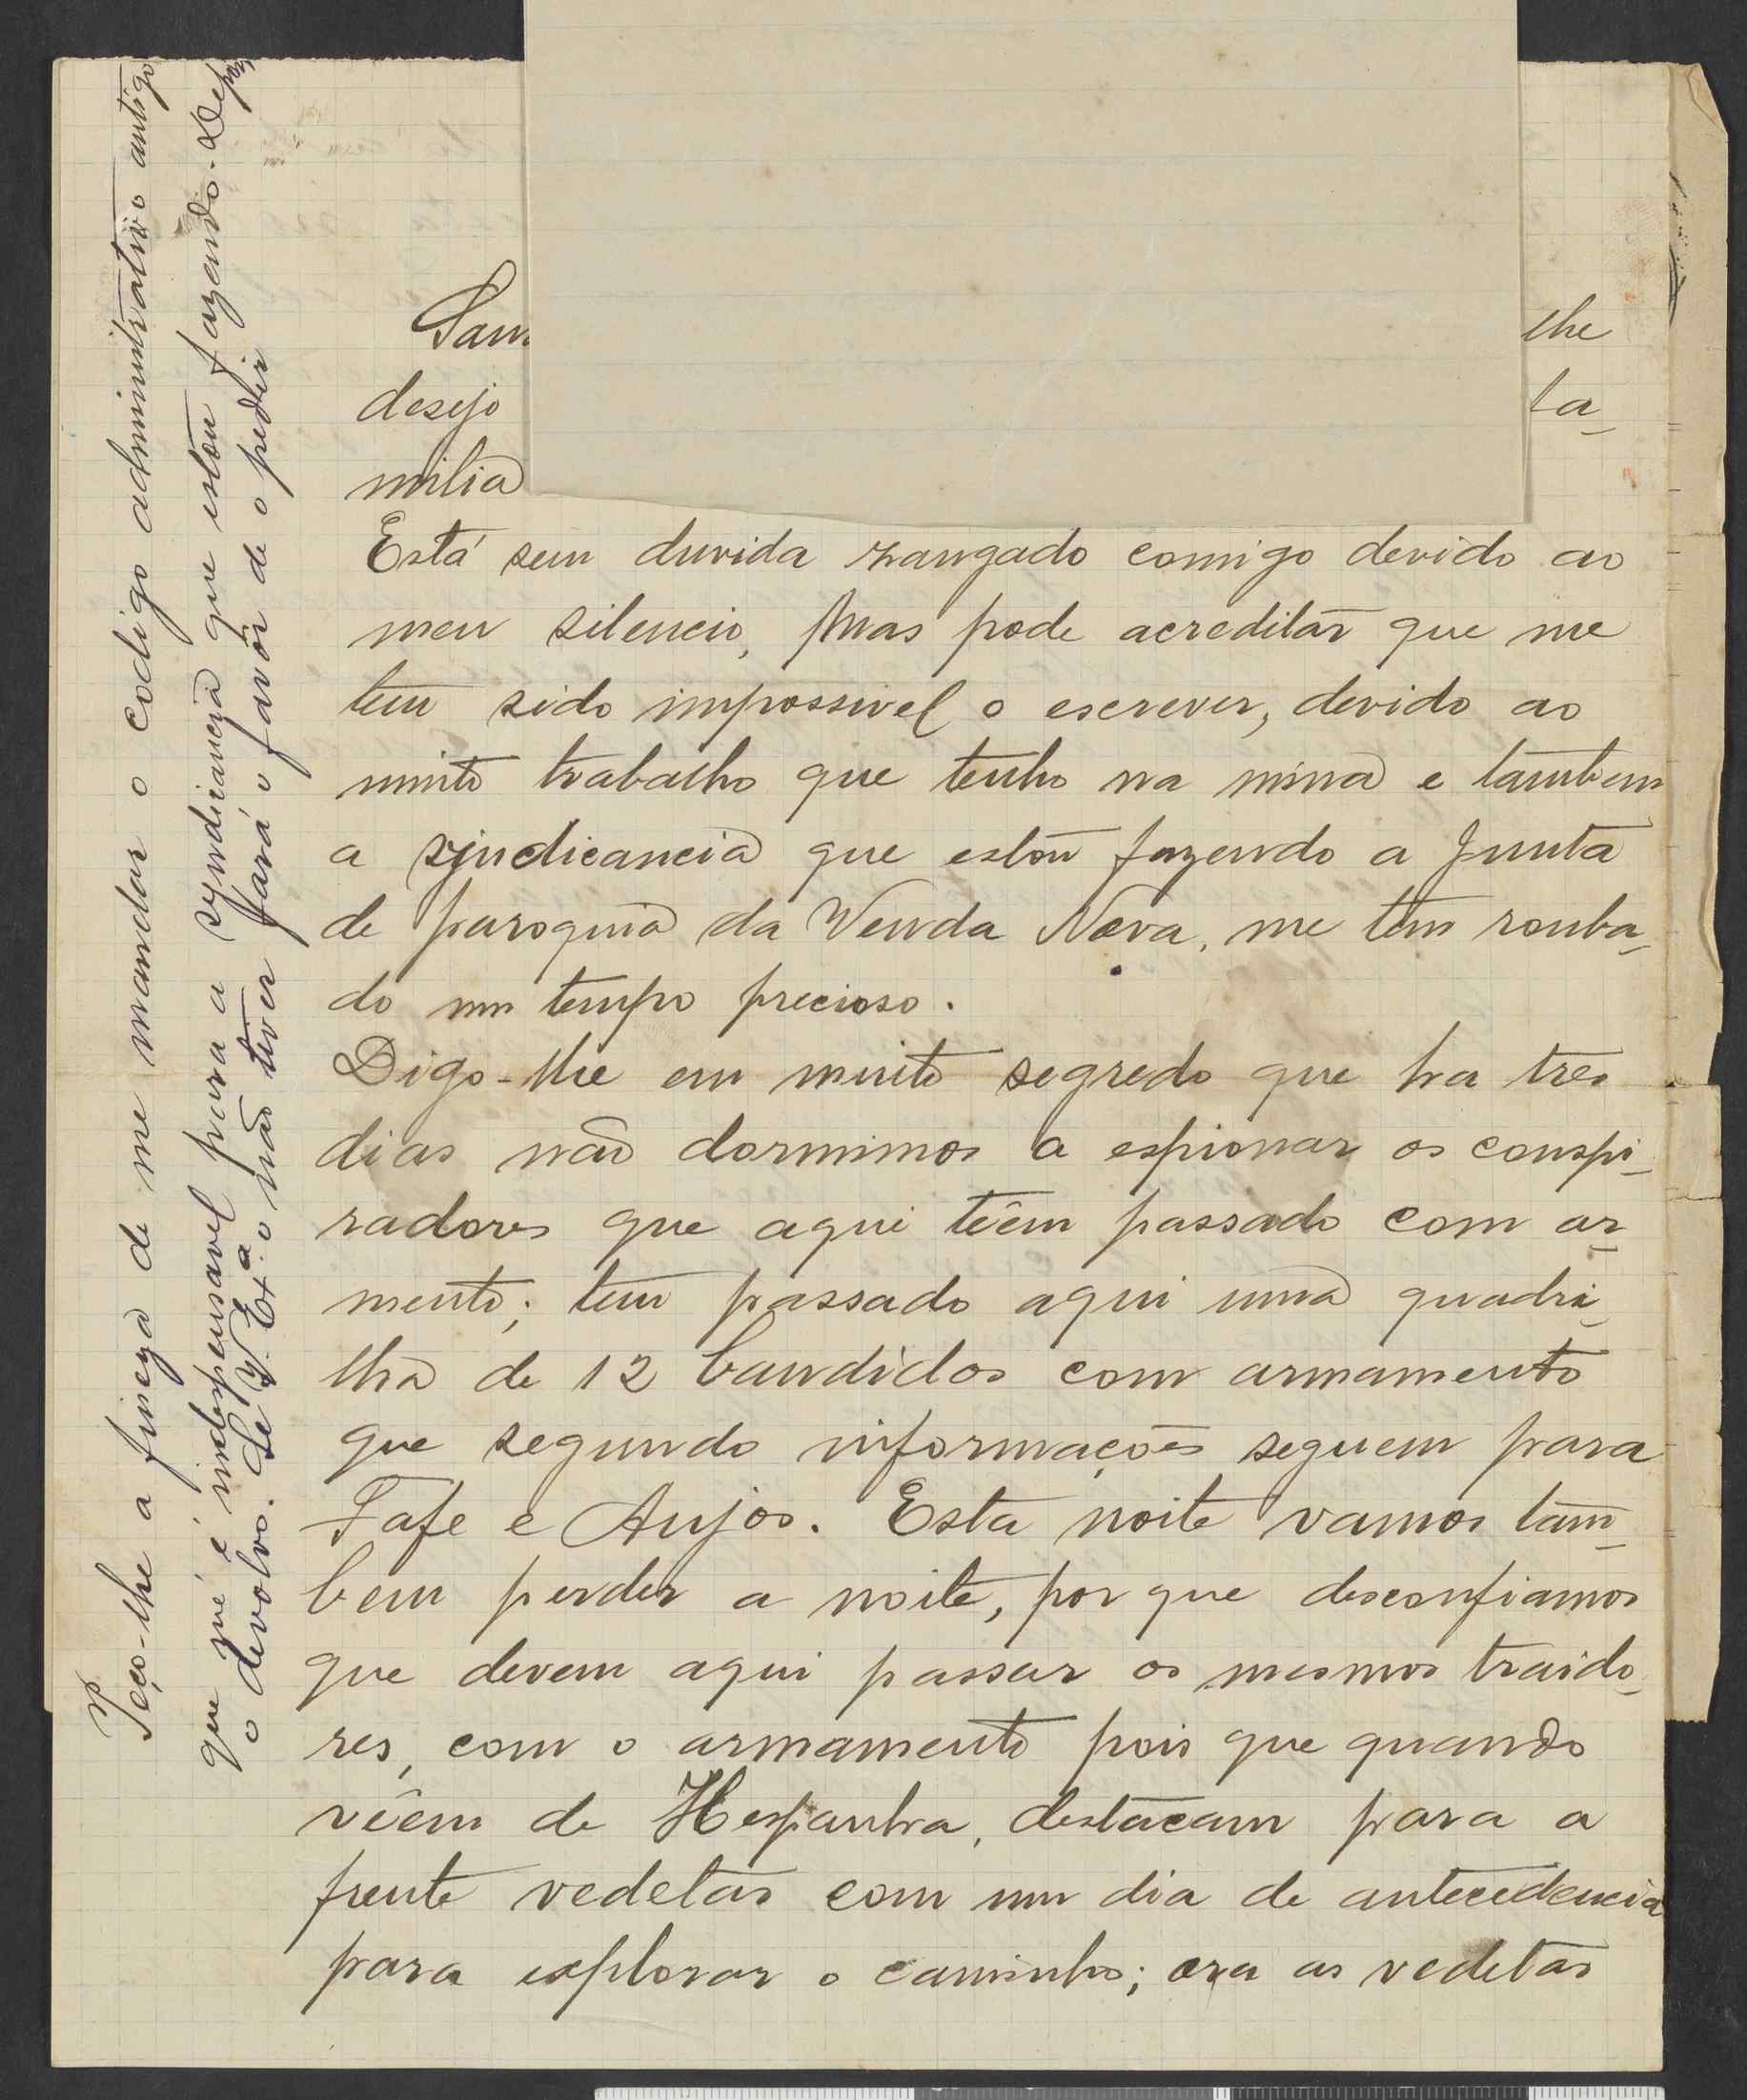 lhe
desejo
fa-
milia
Está sem duvida zangado comigo devido ao
meu silencio, mas pode acreditar que me
tem sido impossivel o escrever, devido ao
muito trabalho que tenho na mina e tambem
a sindicancia que estou fazendo a Junta
de paroquia da Venda Nova, me tem rouba-
do um tempo precioso.
Digo-lhe em muito segredo que ha tres
dias não dormimos a espionar os conspi-
radores que aqui têem passado com ar-
mento; tem passado aqui uma quadri-
lha de 12 bandidos com armamento
que segundo informações seguem para
Fafe e Anjos. Esta noite vamos tam-
bem perder a noite, por que desconfiamos
que devem aqui passar os mesmos traido-
res, com o armamento pois que quando
vêem de Hespanha, destacam para a
frente vedetas com um dia de antecedencia
para explorar o caminho; ora as vedetas
Peço-lhe a fineza de me mandar o codigo administrativo antigo
que me é indespensavel para a syndicancia que estou fazendo. Depois
o devolvo. Se V. Ex.ª o não tiver fará o favôr de o pedir